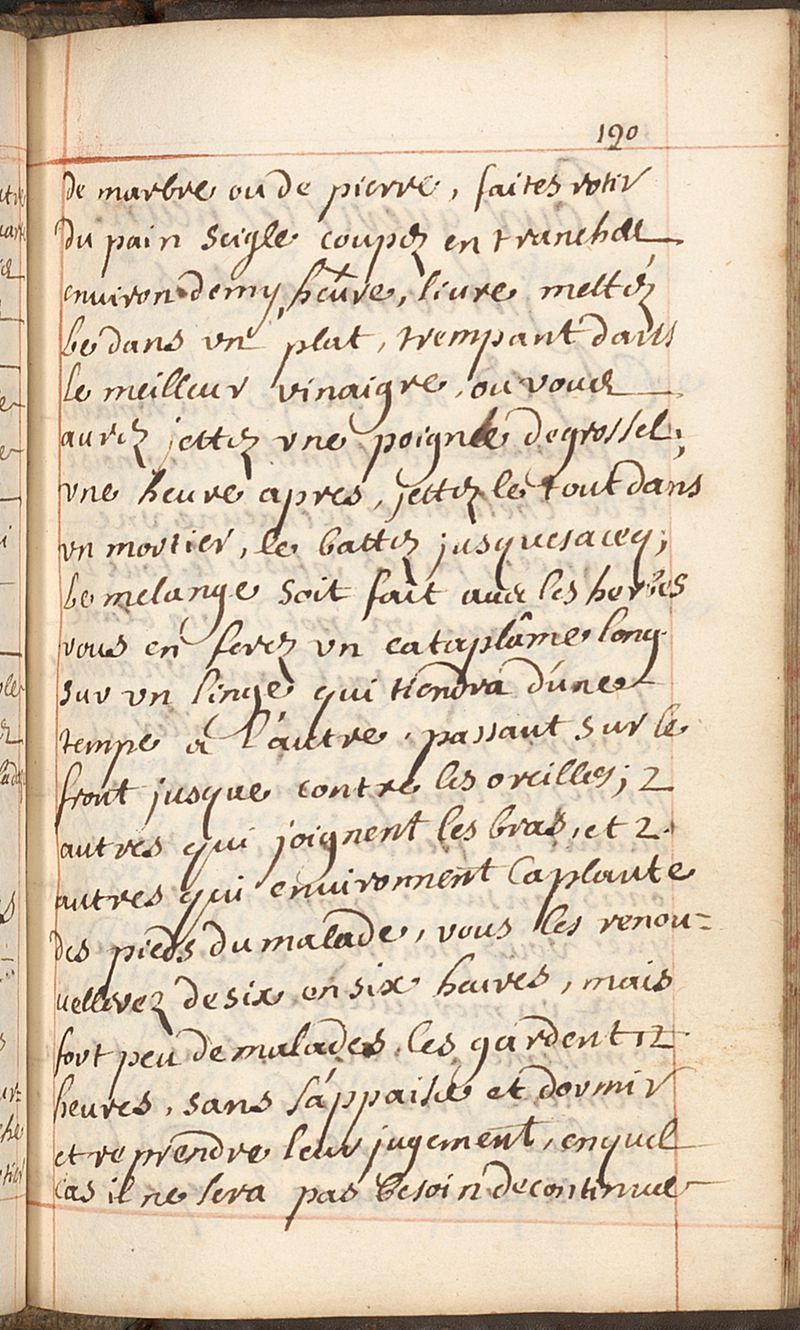 190
de marbre ou de pierre, faites rotir
du pain seigle coupez en tranches
environ demy heure, livre mettez
le dans un plat, trempant dans
le meilleur vinaigre, ou vous
aurez jettez une poignée de gros sel;
une heure apres, jettez le tout dans
un mortier, le battez jusques a ceq;
le melange soit fait avec les herbes
vous en ferez un cataplâme long
sur un linge qui tiendra d'une
tempe a l'autre, passant sur le
front jusque contre les oreilles; 2
autres qui joignent les bras, et 2
autres qui environnent la plante
des pieds du malade, vous les renou=
vellerez de six en six heures, mais
fort peu de malades les gardent 12
heures, sans s'appaiser et dormir
et reprendre leur jugement, en quel
cas il ne sera pas besoin de continuer